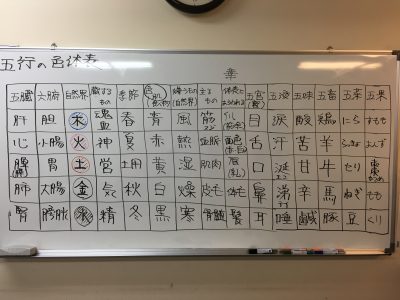 五行の色体表
五臓 六腑 自然界 蔵するもの 季節 色 嫌うもの(自然界) 主るもの 体表に 五官 五液 五味 五畜 五菜 五果
肝 胆 木 魂 春 青 風 筋 爪 目 涙 酸 鶏 にら すもも
心 小腸 火 神 夏 赤 熱 血脈 面色 舌 汗 苦 羊 あんず
脾 胃 土 営 土用 黄 湿 肌肉 唇 口 涎 甘 牛 棗
肺 大腸 金 気 秋 白 燥 皮毛 体毛 鼻 涕 辛 馬 ねぎ もも
腎 膀胱 水 精 冬 黒 寒 骨髄 髪 耳 唾 鹹 豚 豆 くり